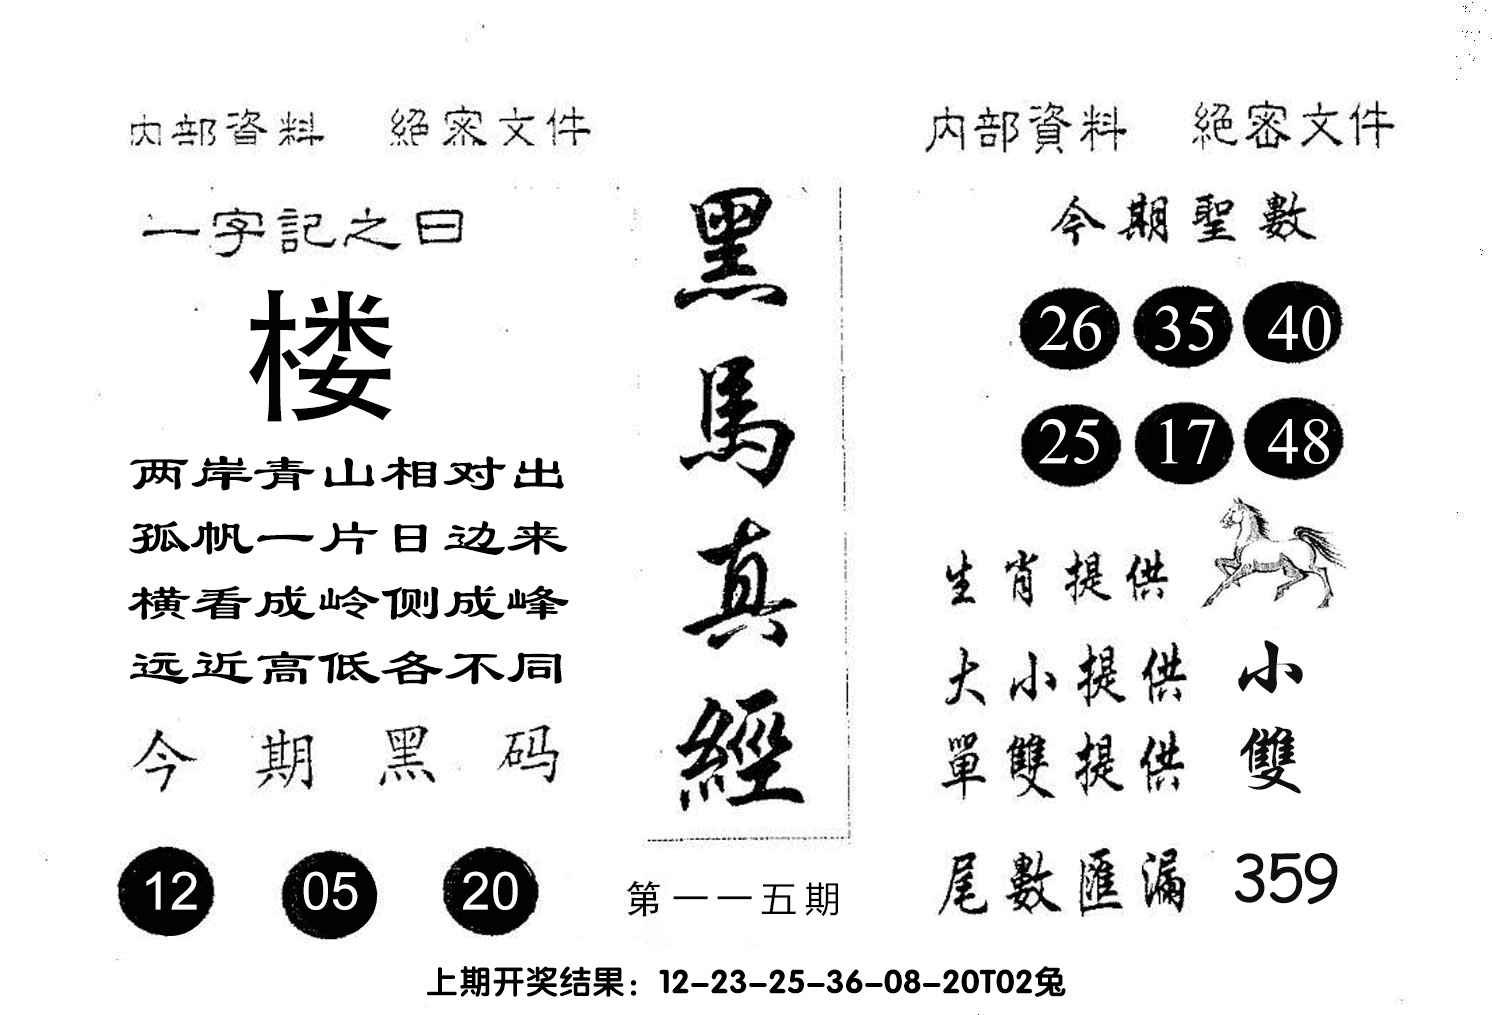 内部資料 絕密文件
一字記之曰
楼
两岸青山相对出
孤帆一片日边来
横看成岭侧成峰
远近高低各不同
今期黑码
12 05 20
黑馬真經
第一一五期
内部資料 絕密文件
今期聖數
26 35 40
25 17 48
生肖提供
大小提供 小
單雙提供 雙
尾數匯漏 359
上期开奖结果：12-23-25-36-08-20T02兔